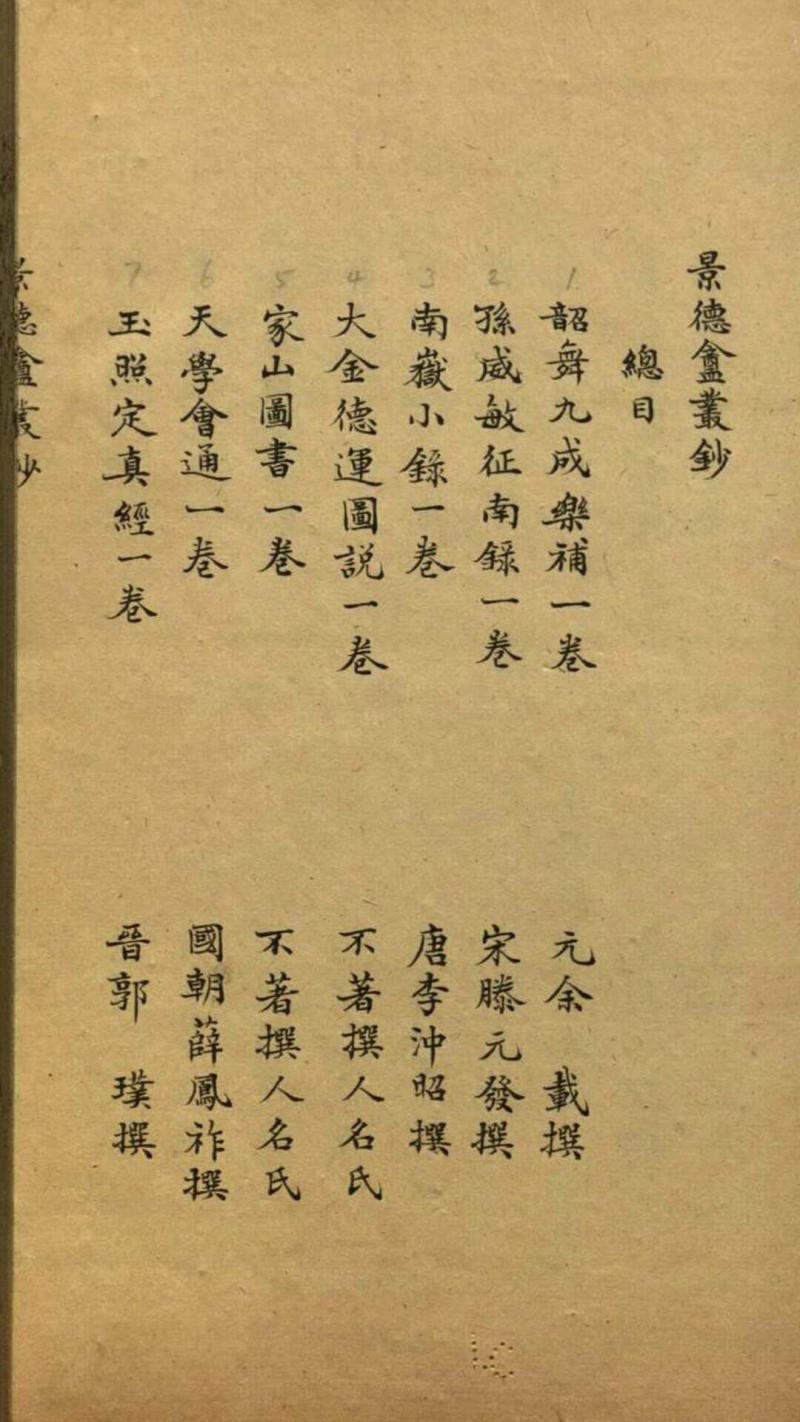 景德盦叢鈔
總目
韶舞九成樂補一卷 元余載撰
孫威敏征南錄一卷 宋滕元發撰
南嶽小錄一卷 唐李沖昭撰
大金德運圖説一卷 不著撰人名氏
家山圖書一卷 不著撰人名氏
天學會通一卷 國朝薛鳳祚撰
玉照定真經一卷 晉郭璞撰
1 2 3 4 5 6 7
景德盦叢鈔